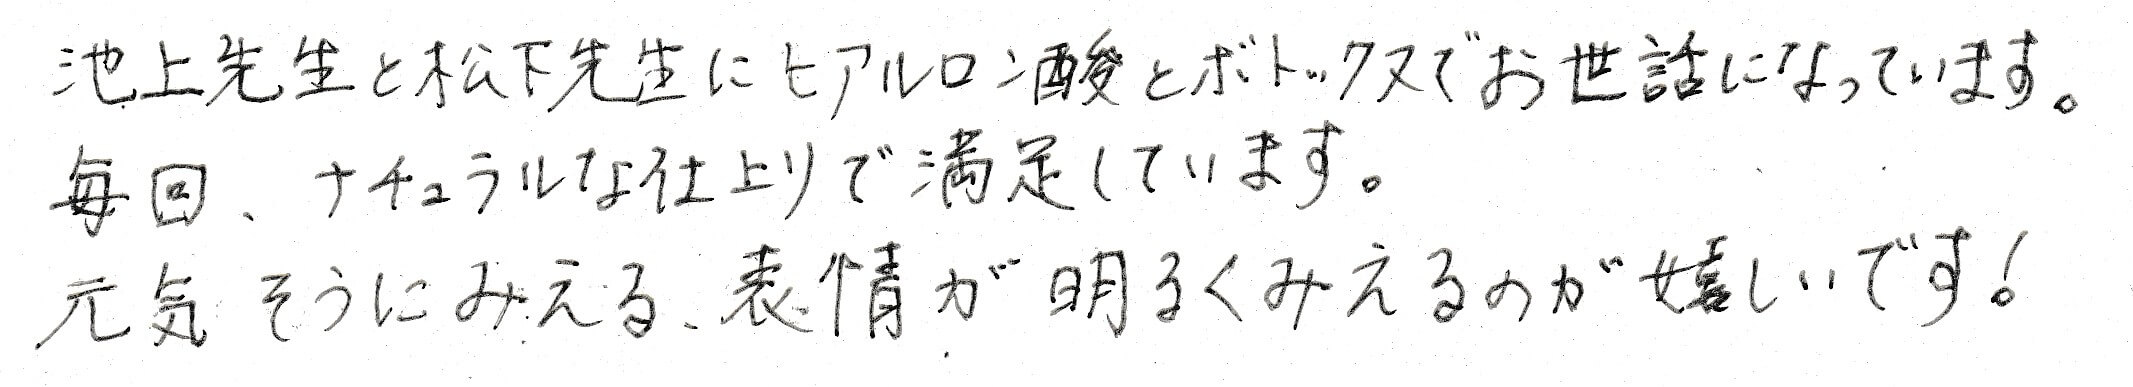 池上先生と松下先生にヒアルロン酸とボトックスでお世話になっています。
毎回、ナチュラルな仕上りで満足しています。
元気そうにみえる、表情が明るくみえるのが嬉しいです！